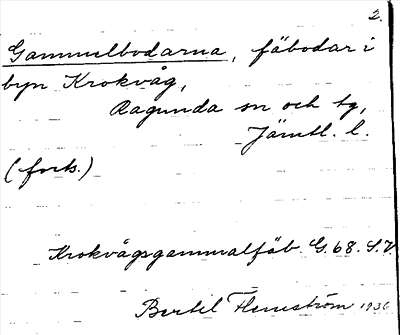 2.
Gammelbodarna, fäbodar i
byn Krokvåg,
Ragunda sn och tg,
Jämtl. l.
(forts.)
Krokvågsgammalfäb. G. 68. S.V.
Bertil Flemström 1936